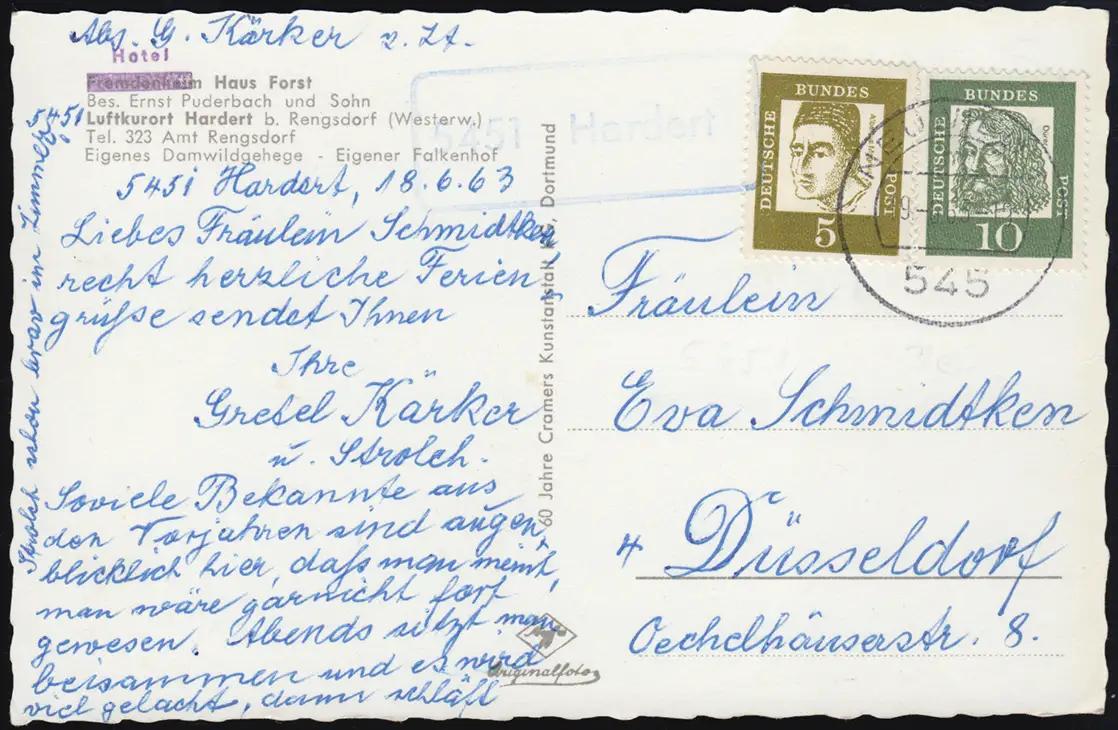 Abs. G. Kärker z. Zt.
Hotel
Fremdenheim Haus Forst
Bes. Ernst Puderbach und Sohn
5451 Luftkurort Hardert b. Rengsdorf (Westerw.)
Tel. 323 Amt Rengsdorf
Eigenes Damwildgehege - Eigener Falkenhof
5451 Hardert, 18.6.63
Liebes Fräulein Schmidtken,
recht herzliche Ferien-
grüße sendet Ihnen
Ihre
Gretel Kärker
u. Strolch.
Soviele Bekannte aus
den Vorjahren sind augen-
blicklich hier, daß man meint,
man wäre garnicht fort
gewesen. Abends sitzt man
beisammen und es wird
viel gelacht, dann schläft
Strolch schon brav im Zimmer.
60 Jahre Cramers Kunstanstalt KG, Dortmund
Originalfoto
5451 Hardert
DEUTSCHE BUNDES POST
5
DEUTSCHE BUNDES POST
10
545
Fräulein
Eva Schmidtken
4 Düsseldorf
Oechelhäuserstr. 8.